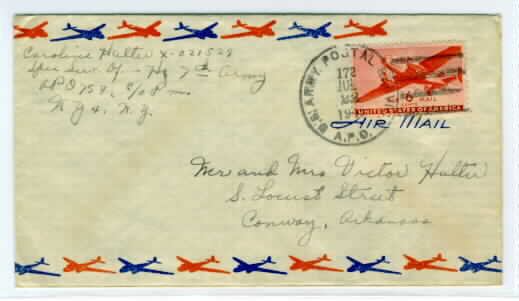 Caroline Halter X-021529
Spec Serv. Of - Hq 7th Army
APO 758, c/o P.m.
N Y 4, N.Y.
U.S. ARMY POSTAL
A.P.O.
6
MAIL
UNITED STATES OF AMERICA
AIR MAIL
Mr and Mrs Victor Halter
S. Locust Street
Conway, Arkansas